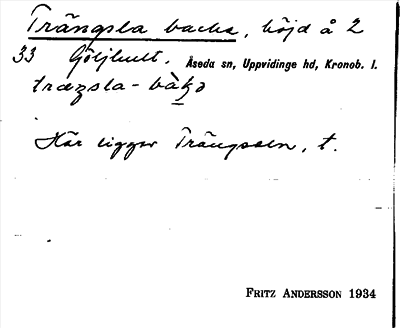 Trängsla backe, höjd å 2
33 Göljhult. Åseda sn, Uppvidinge hd, Kronob. l.
Här ligger Trängslan, t.
FRITZ ANDERSSON 1934